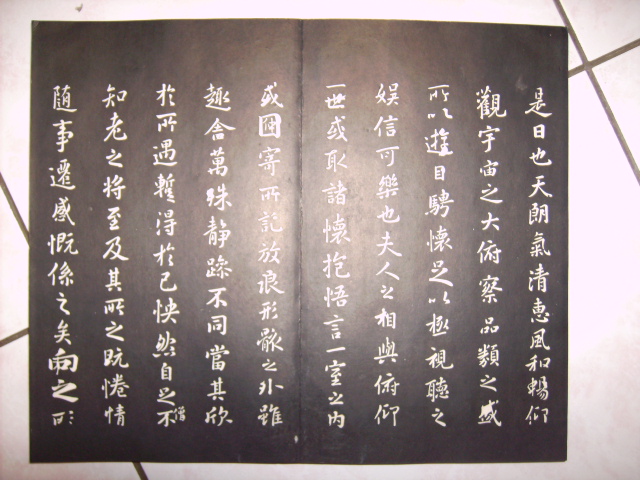 是日也天朗氣清惠風和暢仰
觀宇宙之大俯察品類之盛
所以遊目騁懷足以極視聽之
娛信可樂也夫人之相與俯仰
一世或取諸懷抱悟言一室之內
或因寄所託放浪形骸之外雖
趣舍萬殊靜躁不同當其欣
於所遇暫得於己怏然自足不
僧
知老之將至及其所之既惓情
隨事遷感慨係之矣向之所